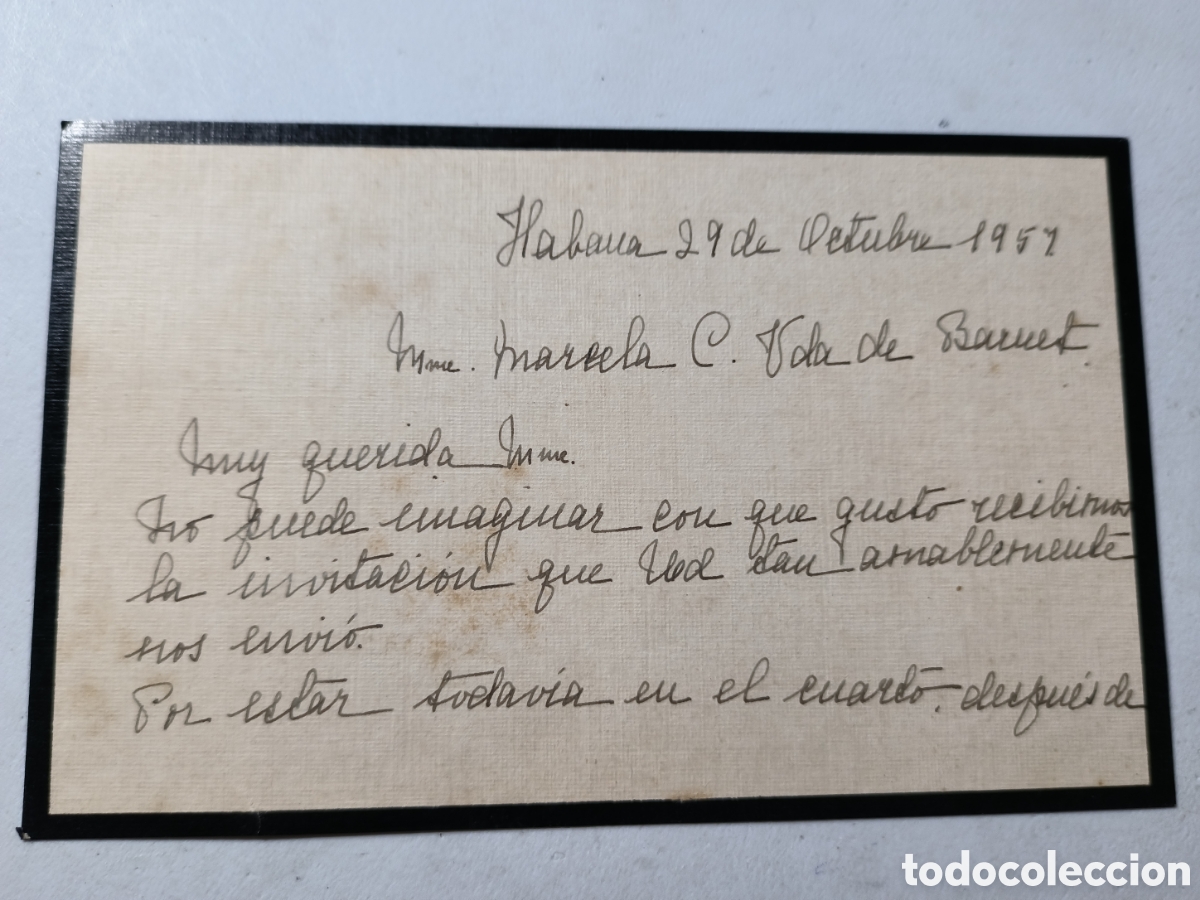 Habana 29 de Octubre 1957
Mme. Marcela C. Vda de Barnet
Muy querida Mme.
No puede imaginar con que gusto recibimos
la invitación que Ud tan amablemente
nos envió.
Por estar todavía en el cuarto después de
todocoleccion